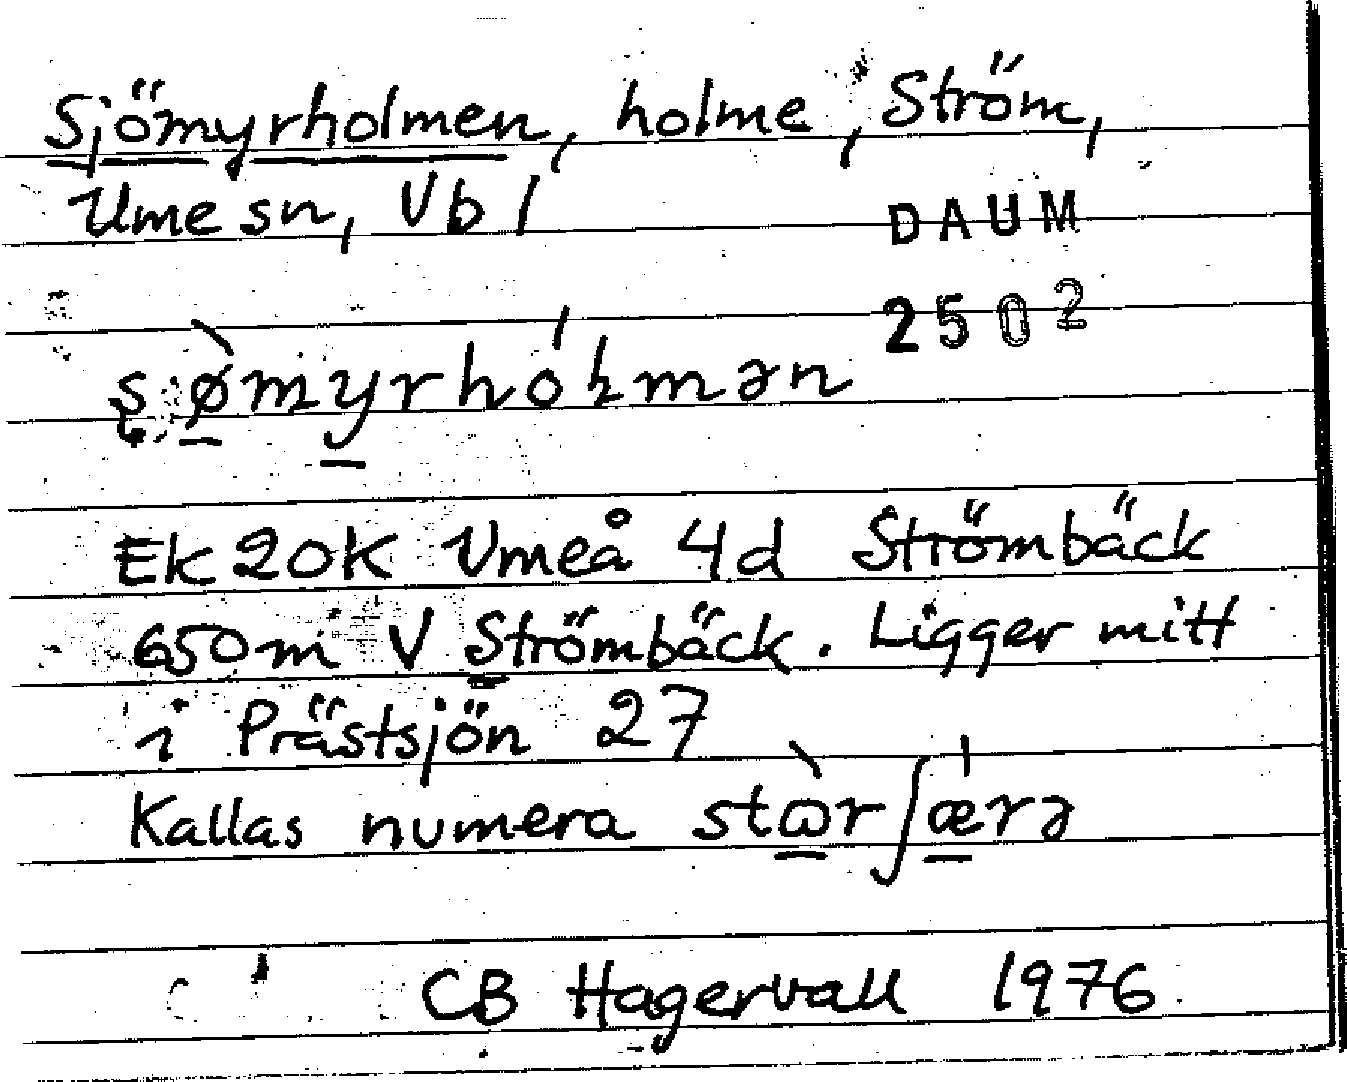 Sjömyrholmen, holme, Ström,
Ume sn, Vb l
DAUM
2502
ʂø̠̀my̠rhóɫmən
Ek 20K Umeå 4d Strömbäck
650m V Strömbäck. Ligger mitt
i Prästsjön 27
Kallas numera stɷ̠̀rʃǽ̠rə
CB Hagervall 1976